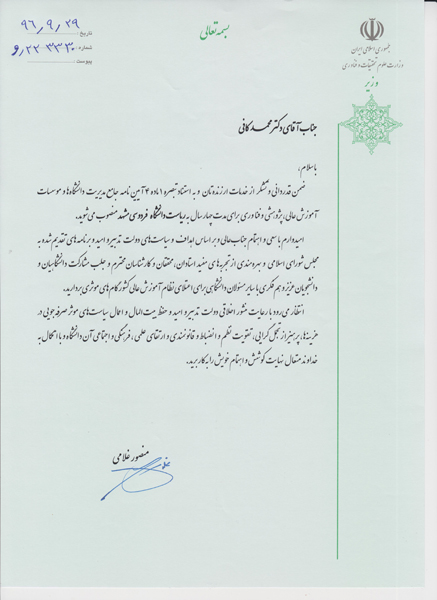 بسمه تعالی
جمهوری اسلامی ایران
وزارت علوم، تحقیقات و فناوری
وزیر
تاریخ: ۹۶٫۹٫۲۹
شماره: و٫۲۲۳۳۳۰
پیوست:
جناب آقای دکتر محمد کافی
با سلام،
ضمن قدردانی و تشکر از خدمات ارزنده‌تان و به استناد تبصره ۱ ماده ۴ آیین نامه جامع مدیریت دانشگاه‌ها و موسسات
آموزش عالی، پژوهشی و فناوری برای مدت چهار سال به ریاست دانشگاه فردوسی مشهد منصوب می‌شوید.
امیدوارم با سعی و اهتمام جنابعالی و بر اساس اهداف و سیاست‌های دولت تدبیر و امید و برنامه های تقدیم شده به
مجلس شورای اسلامی و بهره‌مندی از تجربه‌های مفید استادان، محققان و کارشناسان محترم و جلب مشارکت دانشگاهیان و
دانشجویان عزیز و هم فکری با سایر مسئولان دانشگاهی برای اعتلای نظام آموزش عالی کشور گام های موثری بردارید.
انتظار می‌رود با رعایت منشور اخلاقی دولت تدبیر و امید و حفظ بیت المال و اعمال سیاست‌های موثر صرفه جویی در
هزینه‌ها، پرهیز از تجمل گرایی، تقویت نظم و انضباط و قانونمندی و ارتقای علمی، فرهنگی و اجتماعی آن دانشگاه و با اتکال به
خداوند متعال نهایت کوشش و اهتمام خویش را به کار برید.
منصور غلامی